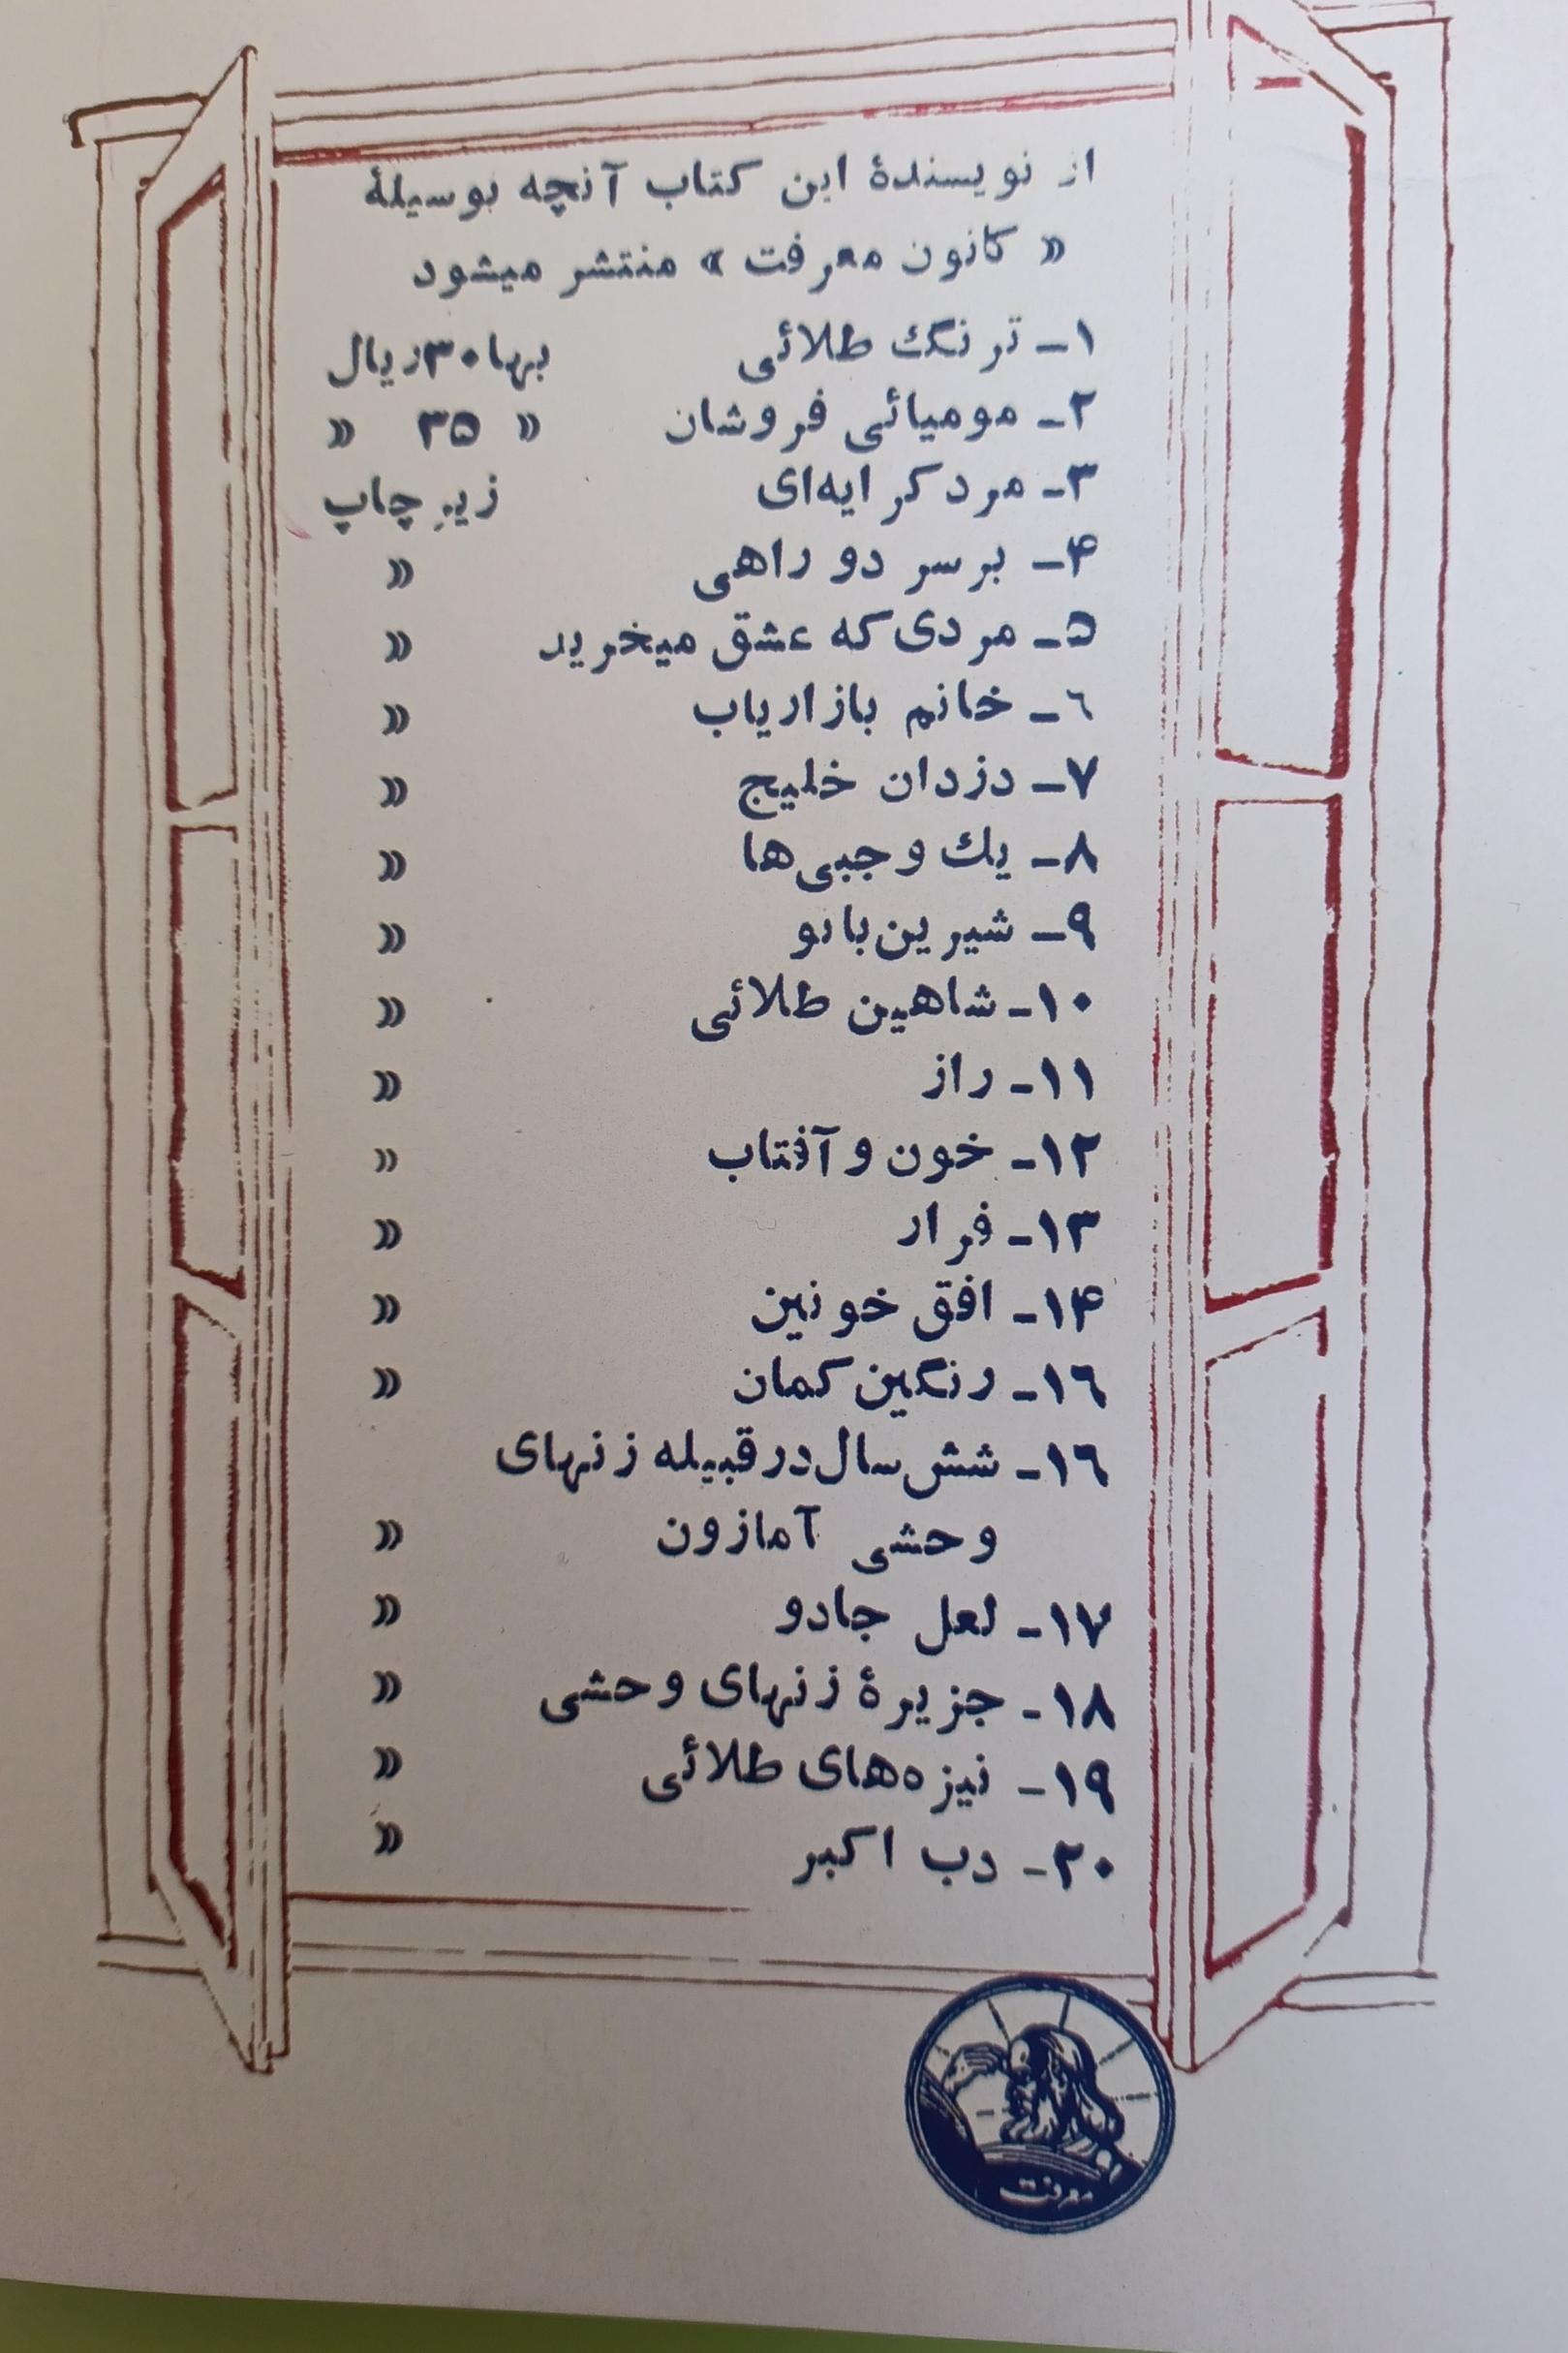 از نویسندهٔ این کتاب آنچه بوسیلهٔ
« کانون معرفت » منتشر میشود
۱- ترنگ طلائی بها ۳۰ ریال
۲- مومیائی فروشان » ۳۵ »
۳- مرد کرایه‌ای زیر چاپ
۴- بر سر دو راهی »
۵- مردی که عشق میخرید »
۶- خانم بازاریاب »
۷- دزدان خلیج »
۸- یك وجبی‌ها »
۹- شیرین‌بانو »
۱۰- شاهین طلائی »
۱۱- راز »
۱۲- خون و آفتاب »
۱۳- فرار »
۱۴- افق خونین »
۱۶- رنگین کمان »
۱۶- شش سال در قبیله زنهای
وحشی آمازون »
۱۷- لعل جادو »
۱۸- جزیرهٔ زنهای وحشی »
۱۹- نیزه‌های طلائی »
۲۰- دب اکبر »
معرفت